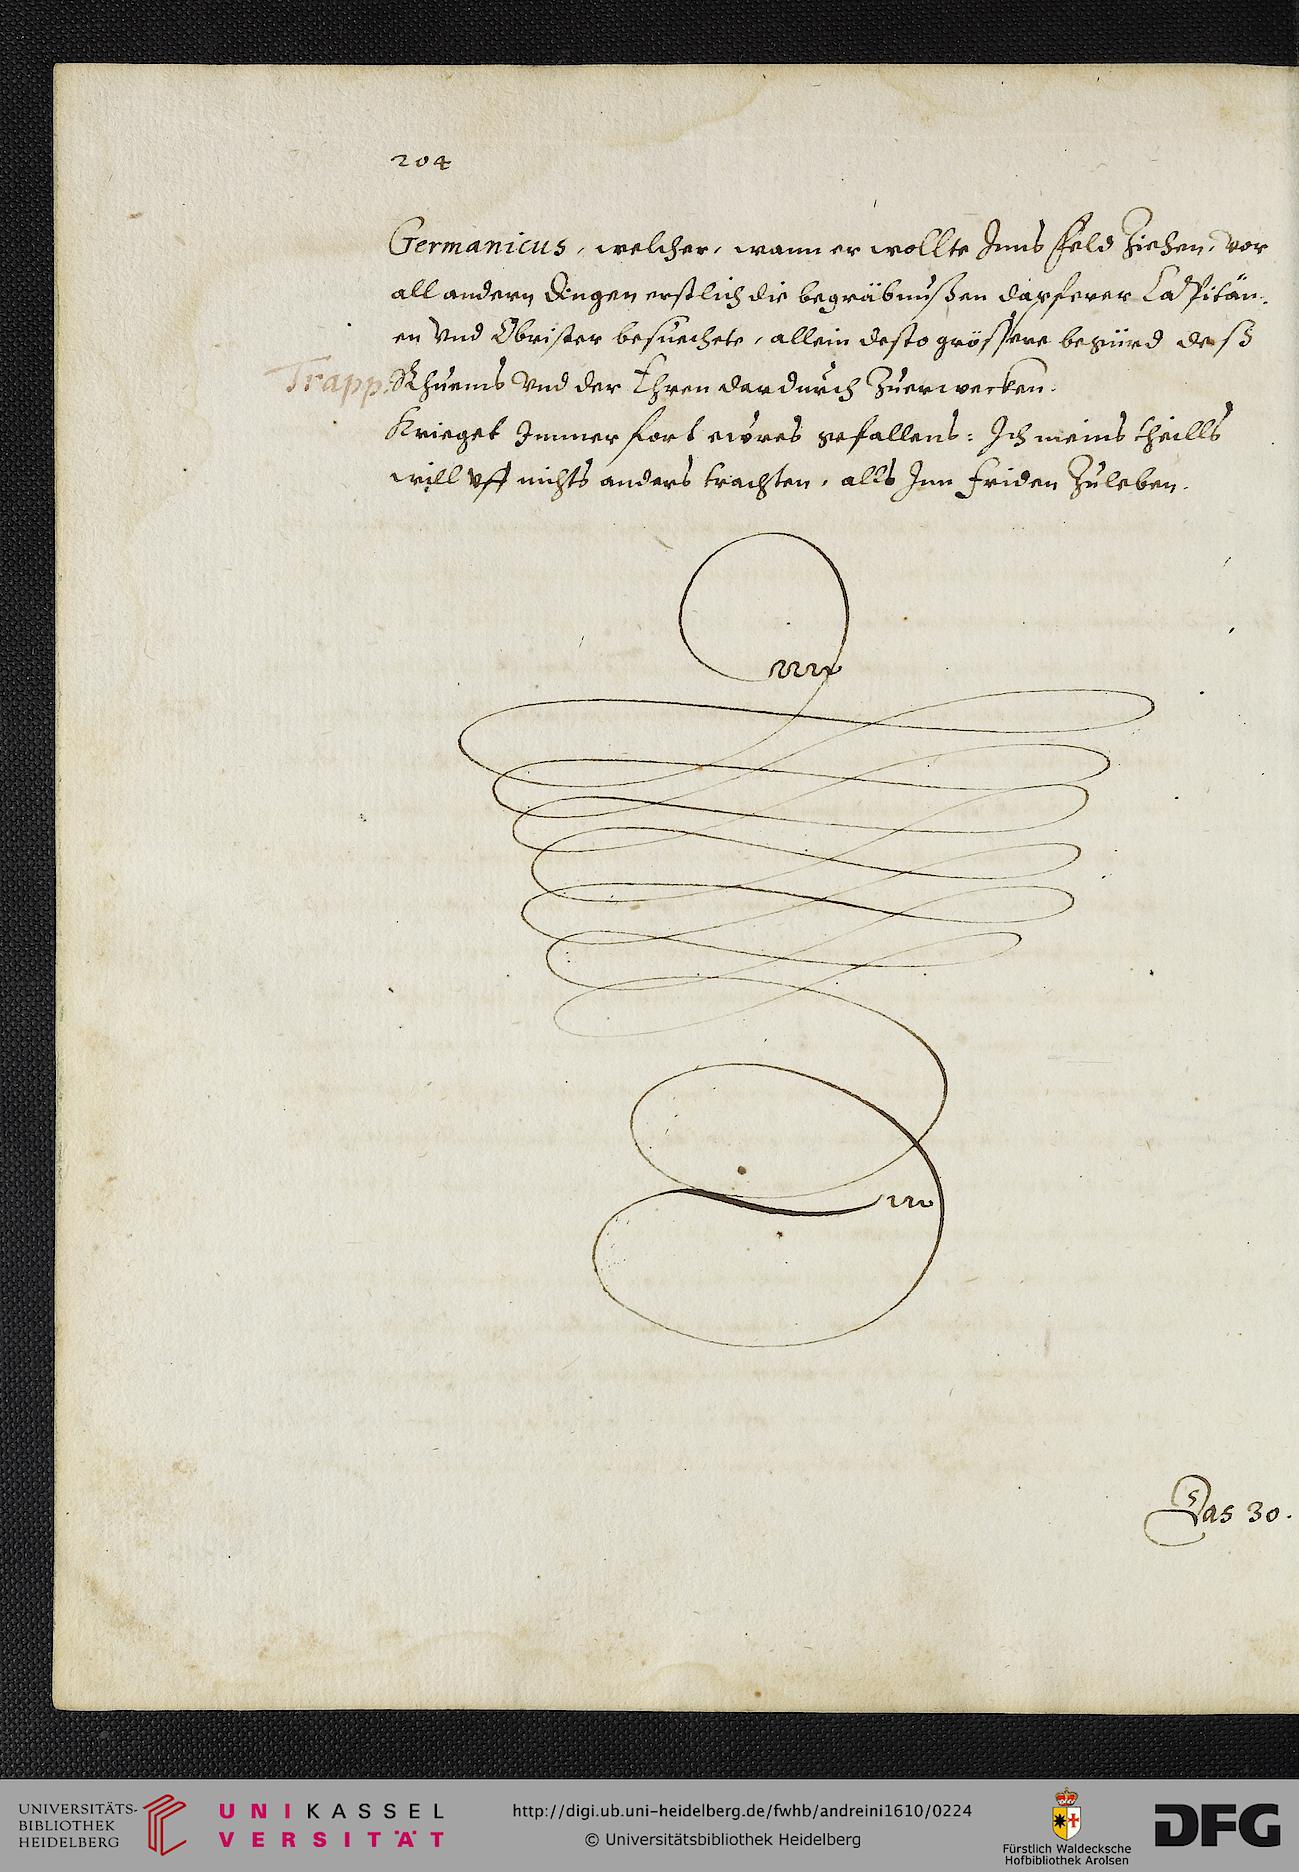 204
Germanicus, welcher, wann er wollte Inns Feld Ziehen, vor
all andern dingen erstlich die begräbnußen dapferer Capitän,
en vnd Obrister besuechete, allein desto grössere begürd deß
Trapp. Rhuems vnd der Ehren dardurch Zuerwecken.
Krieget Immer fort ewres gefallens: Ich meins theills
will vff nichts anders trachten, alls Inn Friden Zuleben.
Das 30.
UNIVERSITÄTS-
BIBLIOTHEK
HEIDELBERG
UNIKASSEL
VERSITÄT
http://digi.ub.uni-heidelberg.de/fwhb/andreini1610/0224
© Universitätsbibliothek Heidelberg
Fürstlich Waldecksche
Hofbibliothek Arolsen
DFG